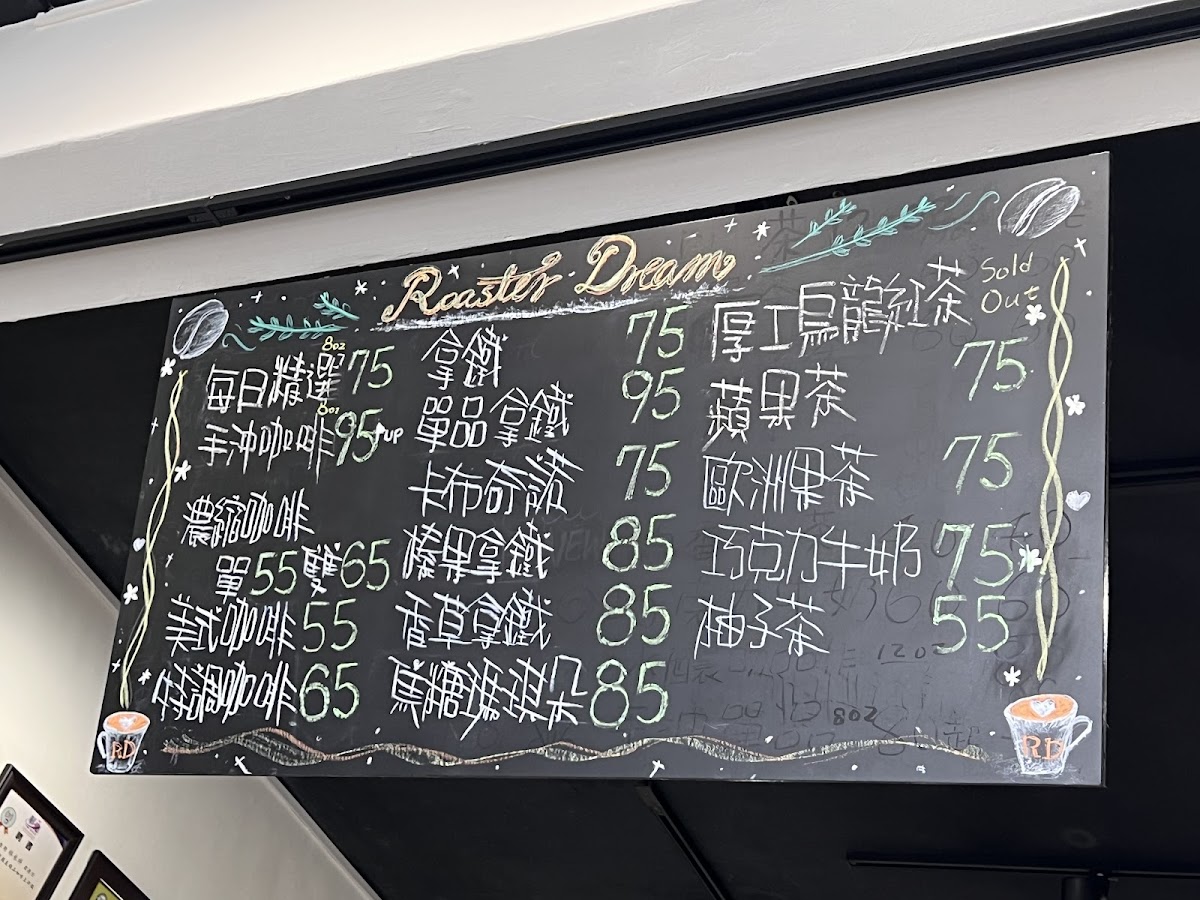 Roaster Dream
8oz
每日精選 75
8oz
手沖咖啡 95↑UP
濃縮咖啡
單55 雙65
美式咖啡 55
特調咖啡 65
拿鐵 75
單品拿鐵 95
卡布奇諾 75
榛果拿鐵 85
香草拿鐵 85
焦糖瑪琪朵 85
厚工烏龍紅茶 Sold Out
75
蘋果茶
歐洲果茶 75
巧克力牛奶 75
柚子茶 55
12oz
8oz
RD
RD